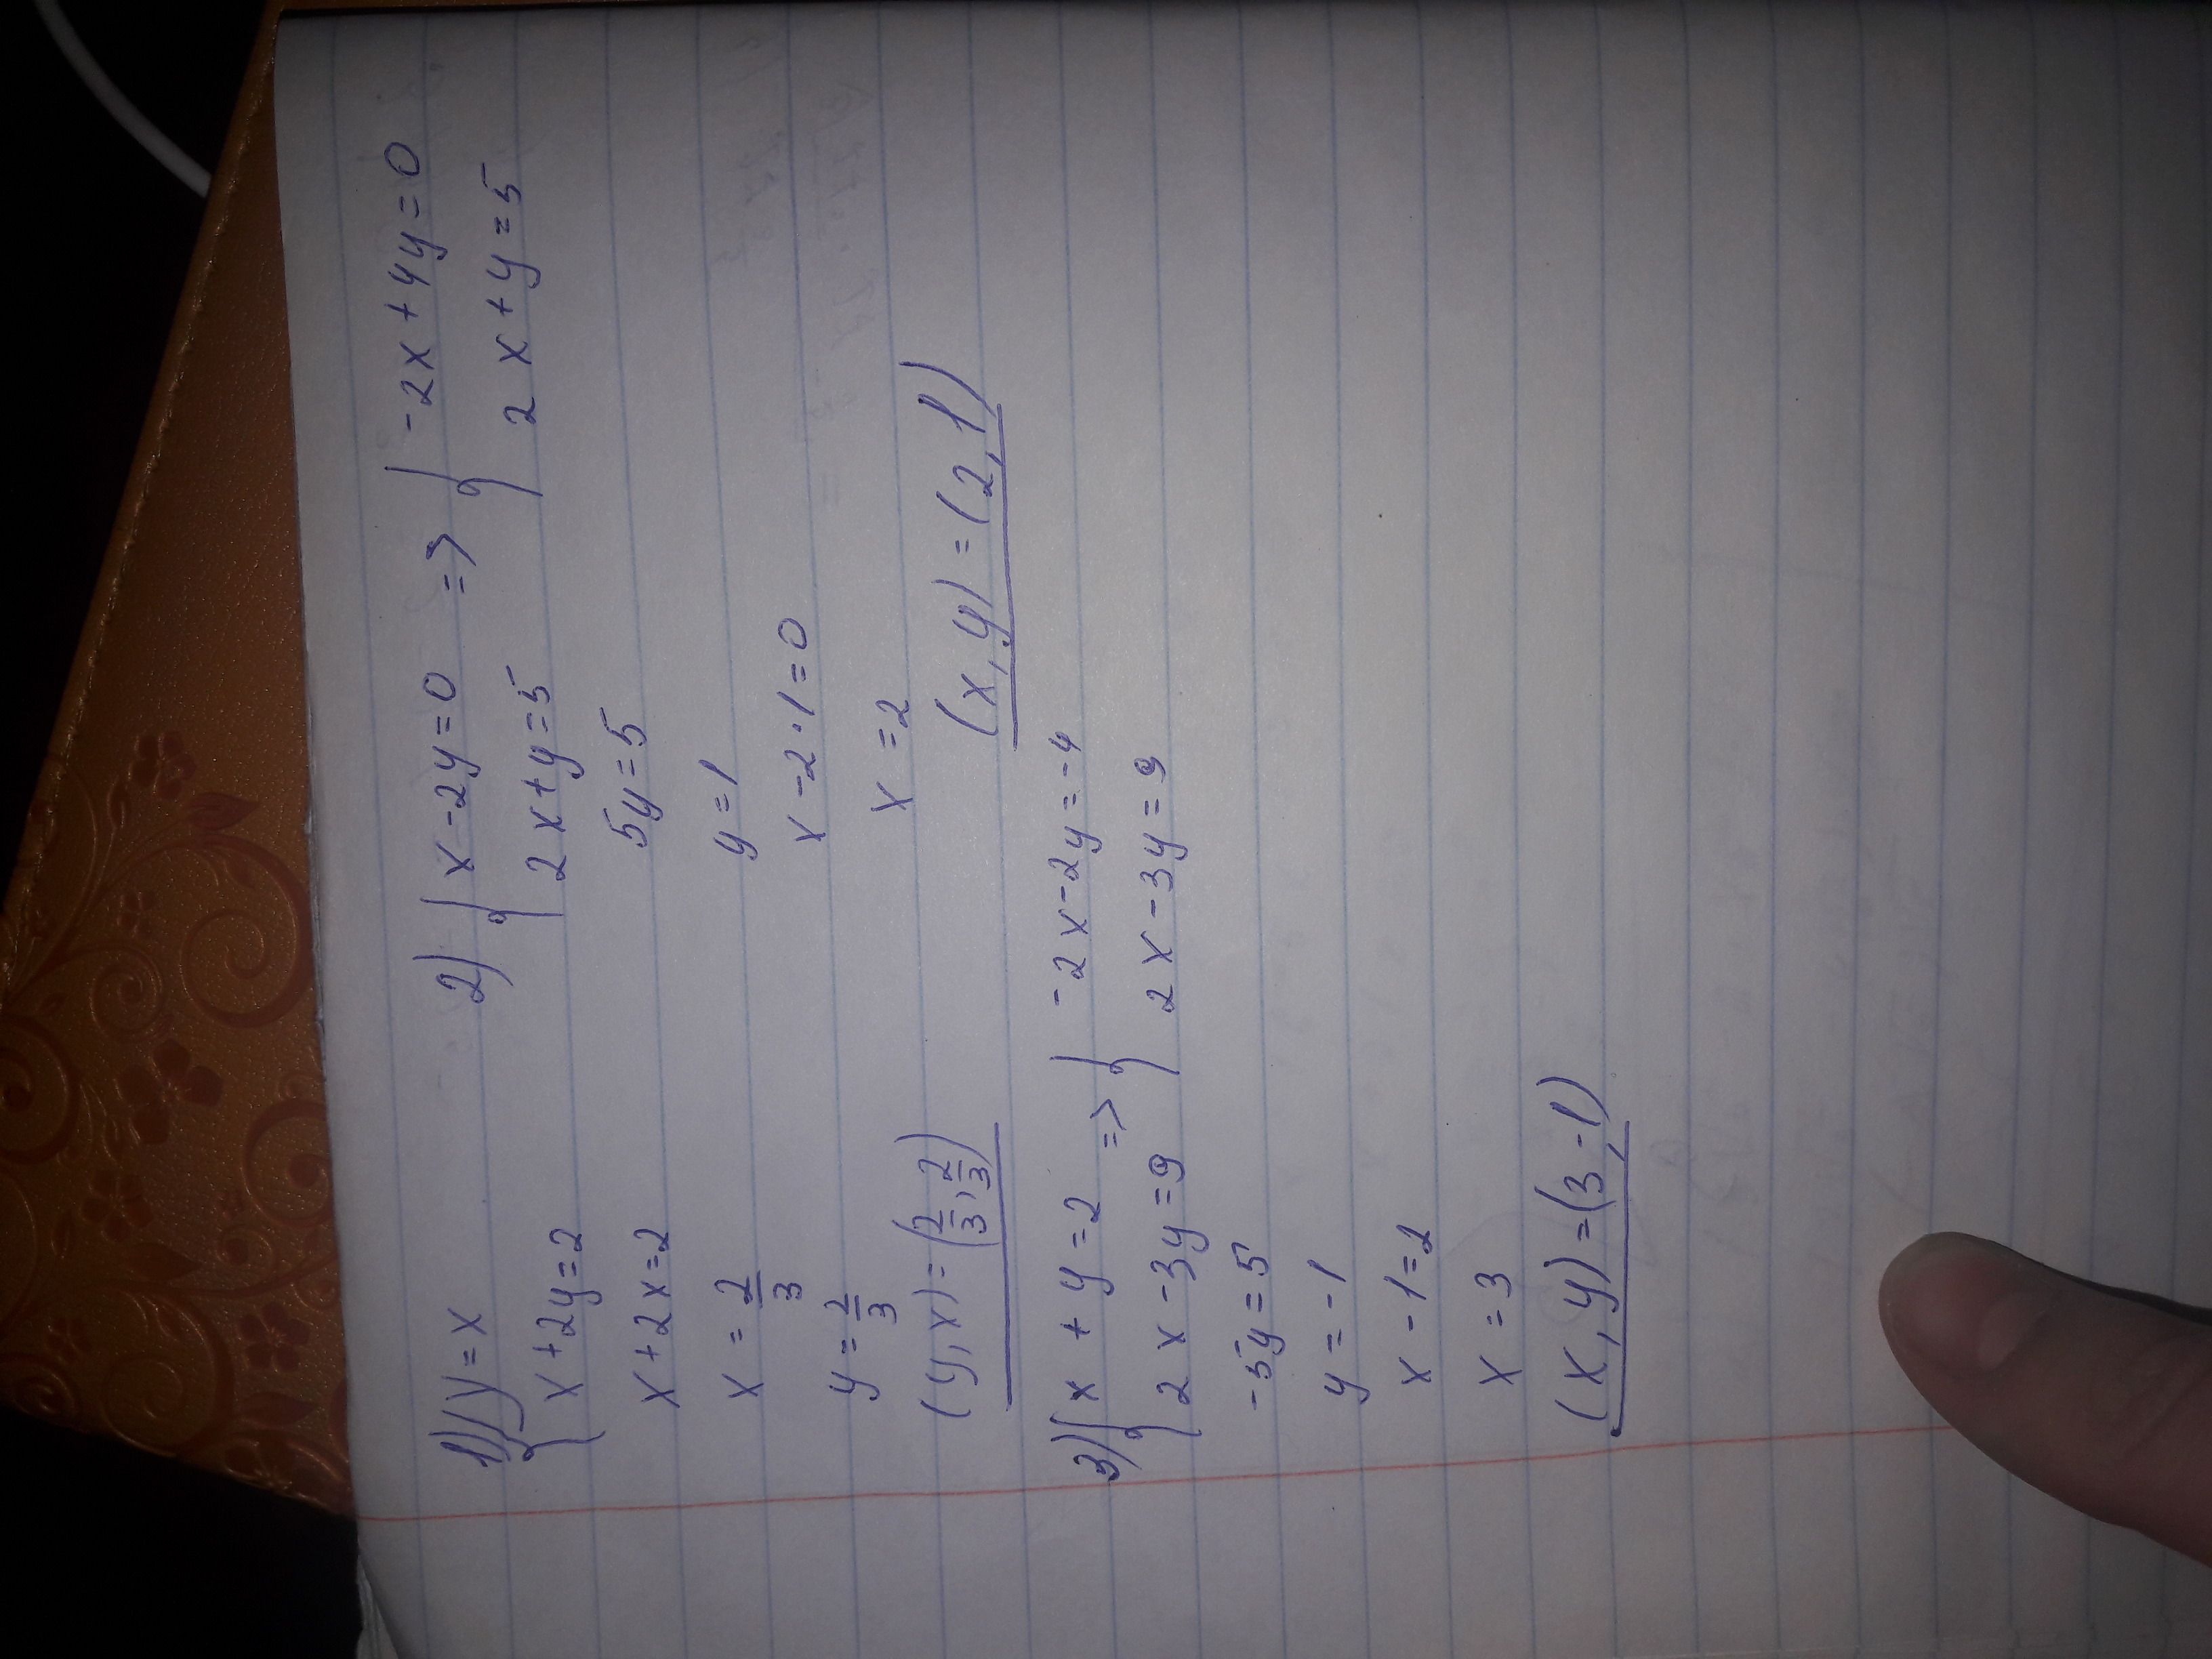 1) { y=x
x+2y=2
x+2x=2
x=2/3
y=2/3
(y,x)=(2/3,2/3)
2) { x-2y=0 => { -2x+4y=0
2x+y=5 2x+y=5
5y=5
y=1
x-2·1=0
x=2
(x,y)=(2,1)
3) { x+y=2 => { -2x-2y=-4
2x-3y=9 2x-3y=9
-5y=5
y=-1
x-1=2
x=3
(x,y)=(3,-1)